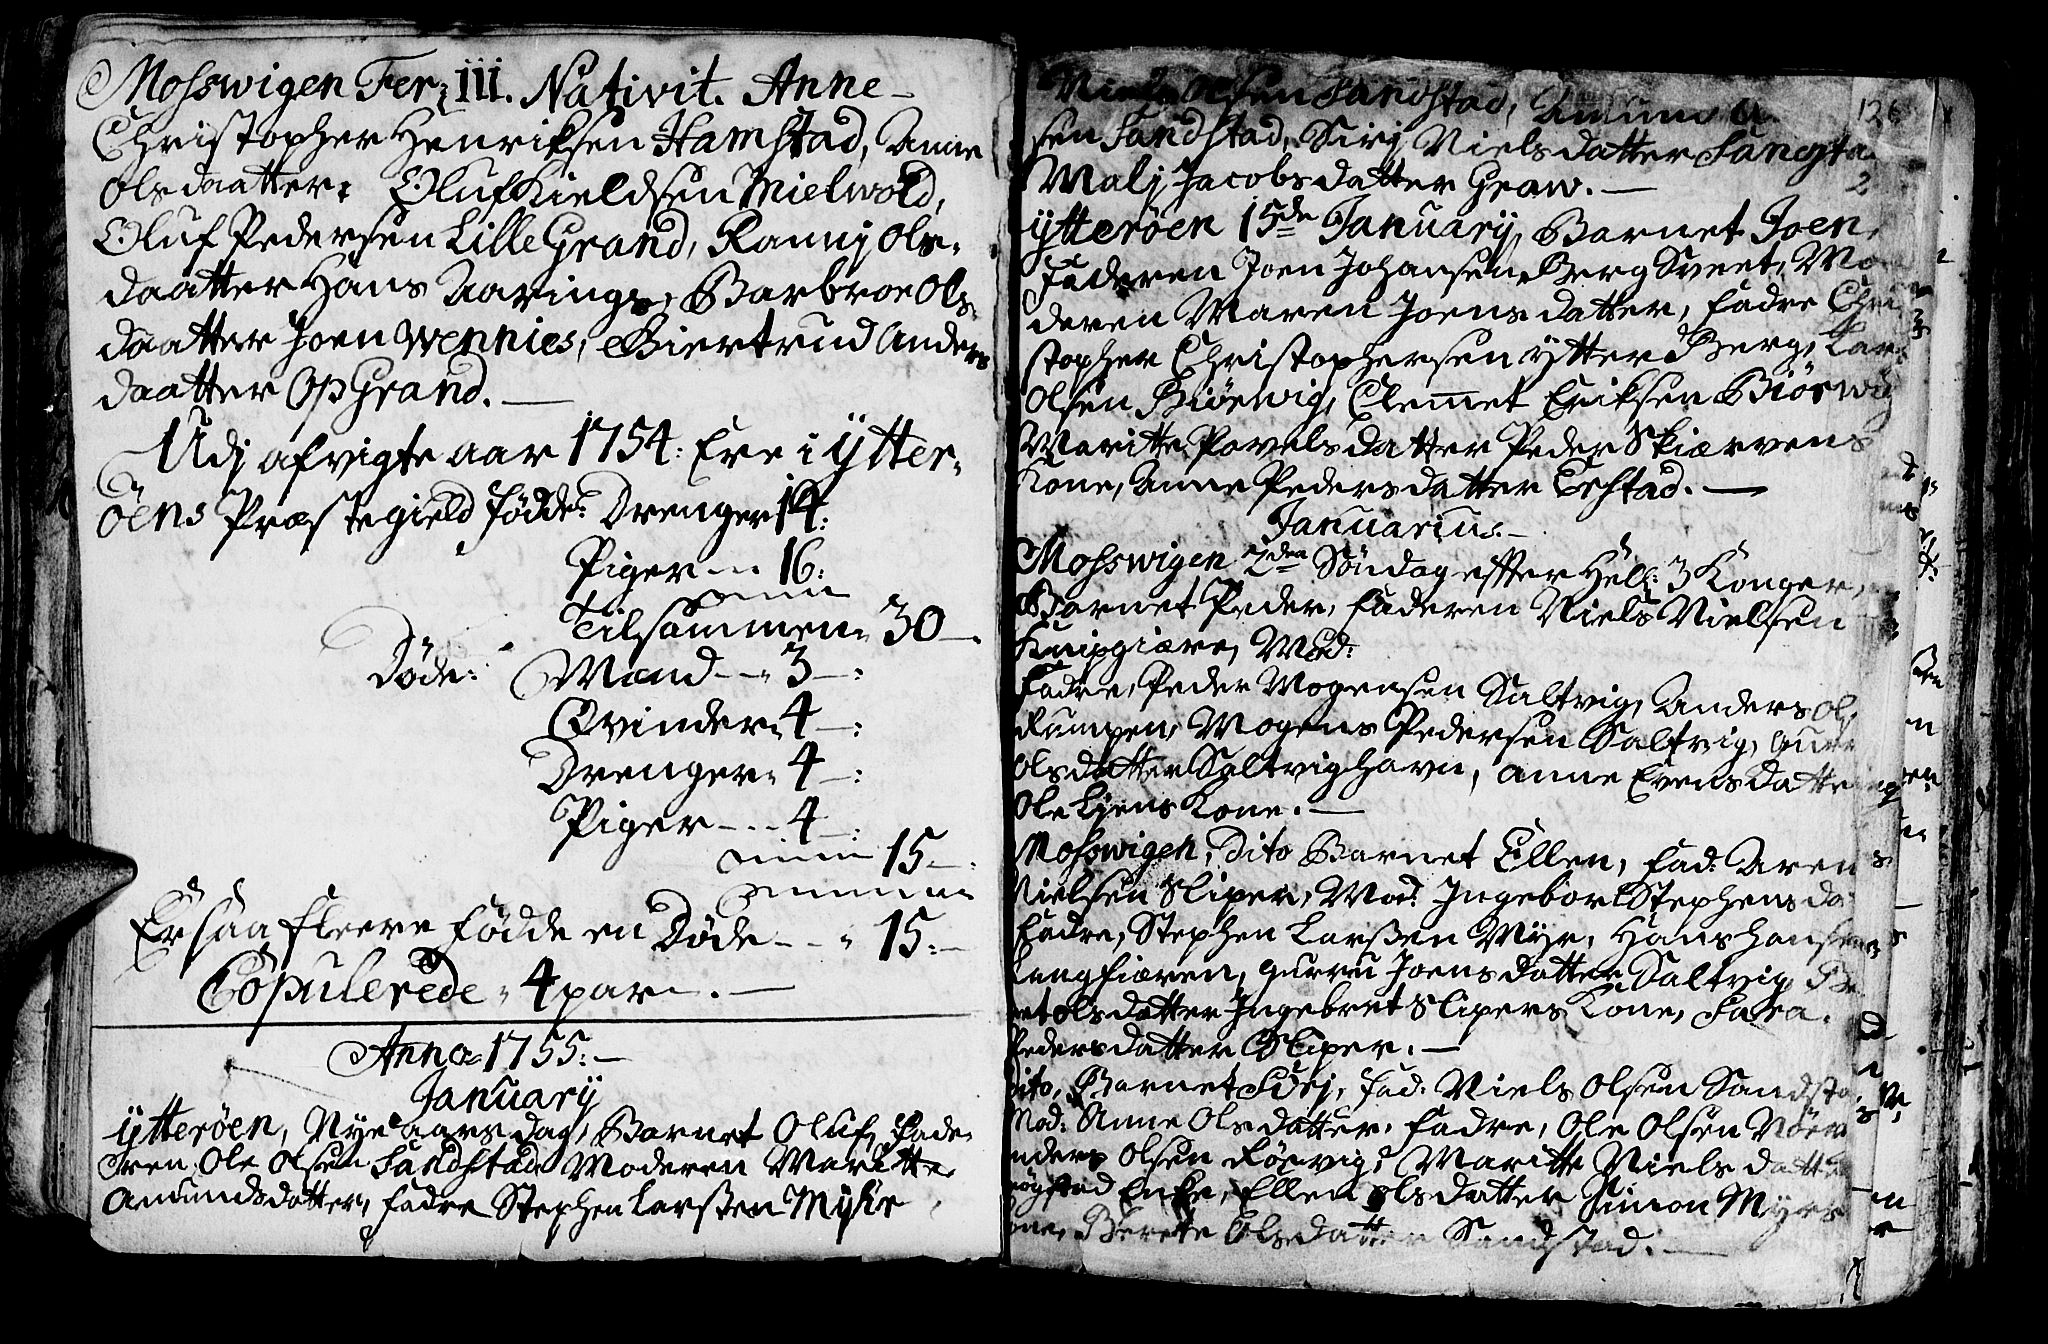 Mosswigen Fer: III. Nativit. Anne
Christopher Henriksen Hamstad, Anne
Olsdaatter: Oluf Kieldsen Mielwold,
Oluf Pedersen Lille Grand, Rannj Ols-
daatter Hans Aarings, Barbroe Ols-
daatter Joen Wennies, Giertrud Anders
daatter Op Grand.
Udj afvigte aar 1754: Ere i Ytter-
öens Præstegield fødde: Drenger 14:
Piger 16:
Tilsammen 30
Døde: Mænd 3
Qvinder 4
Drenger 4
Piger 4
15
Er saa fleere fødde en Døde 15:
Copulerede 4 par.
Anno 1755:
January
Ytterøen, Nye aars dag, Barnet Oluf, Fade-
ren Ole Olsen Sandstad Moderen Maritte
Amundsdatter, Fadre Stephen Larssen Myhr
Niels Olsen Sandstad, Amund
sen Sandstad, Sirj Nielsdatter Sandsta
Malj Jacobsdatter Graw.
Ytterøen 15de January, Barnet Joen,
Faderen Joen Johansen Berg Sveet, Mo
deren Maren Joensdatter, Fadre Chri
stopher Christophersen Ytter Berg, Lar
Olsen Biörwig, Clemet Eriksen Biörwig
Maritte Povelsdatter Peder Skiærvens
Kone, Anne Pedersdatter Erstad.
Januarius.
Mosswigen 2den Söndag effter Hell: 3 Konger,
Barnet Peder, Faderen Niels Nielsen
Knipgiære, Mod:
Fadre, Peder Mogensen Saltvig, Anders Ols
Rumpen, Mogens Pedersen Saltvig, Gurr
Olsdatter Saltvighavn, Anne Evensdatter
Ole Lyens Kone.
Mosswigen, Dito Barnet Ellen, Fad: Aren
Nielsen Sliper, Mod: Ingebor Stephensda
Fadre, Stephen Larssen Myr, Hans Hansen
Langfiæren, Gurru Joensdatter Saltvig, Be
ret Olsdatter Ingebret Slipers Kone, Sara
Pedersdatter Sliper.
Dito, Barnet Sirj, Fad: Niels Olsen Sandsta
Mod: Anne Olsdatter, Fadre, Ole Olsen
Anders Olsen Rösvig, Maritte Nielsdatt
Enke, Ellen Olsdatter Simon Myrs
Kone, Berete Olsdatter Sandstad.
126